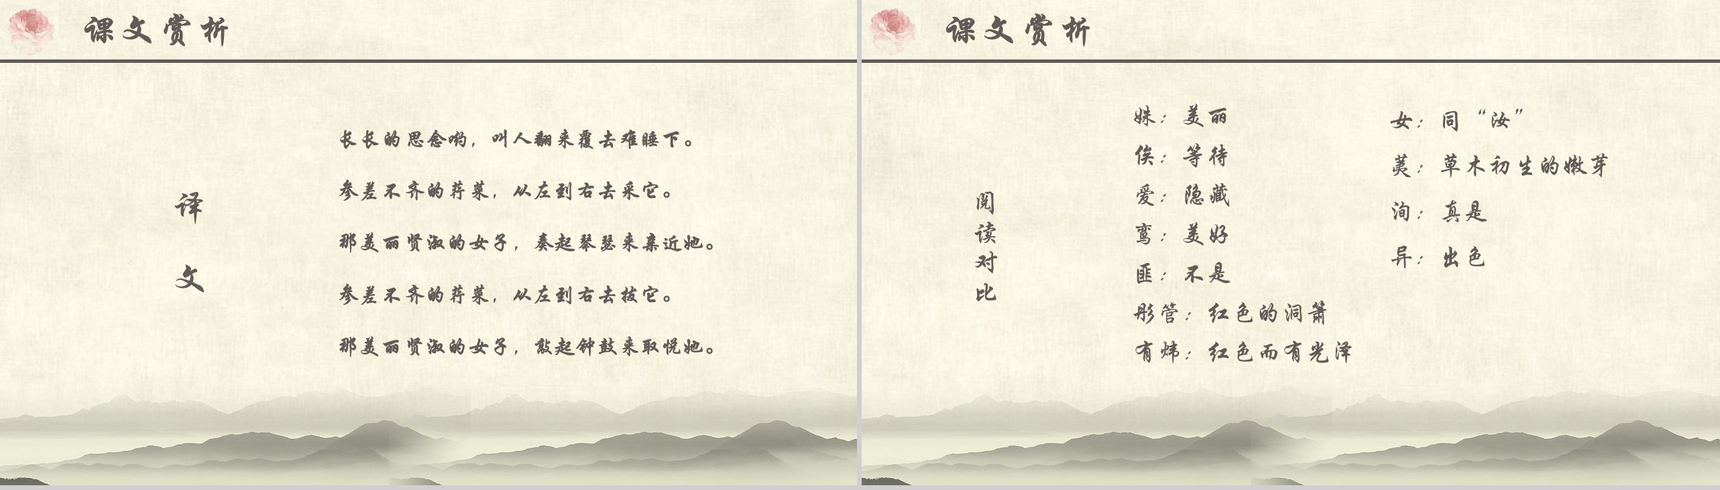 课文赏析
译文
长长的思念哟，叫人翻来覆去难睡下。
参差不齐的荇菜，从左到右去采它。
那美丽贤淑的女子，奏起琴瑟来亲近她。
参差不齐的荇菜，从左到右去拔它。
那美丽贤淑的女子，敲起钟鼓来取悦她。
课文赏析
阅读对比
姝：美丽
俟：等待
爱：隐藏
鸾：美好
匪：不是
彤管：红色的洞箫
有炜：红色而有光泽
女：同“汝”
荑：草木初生的嫩芽
洵：真是
异：出色